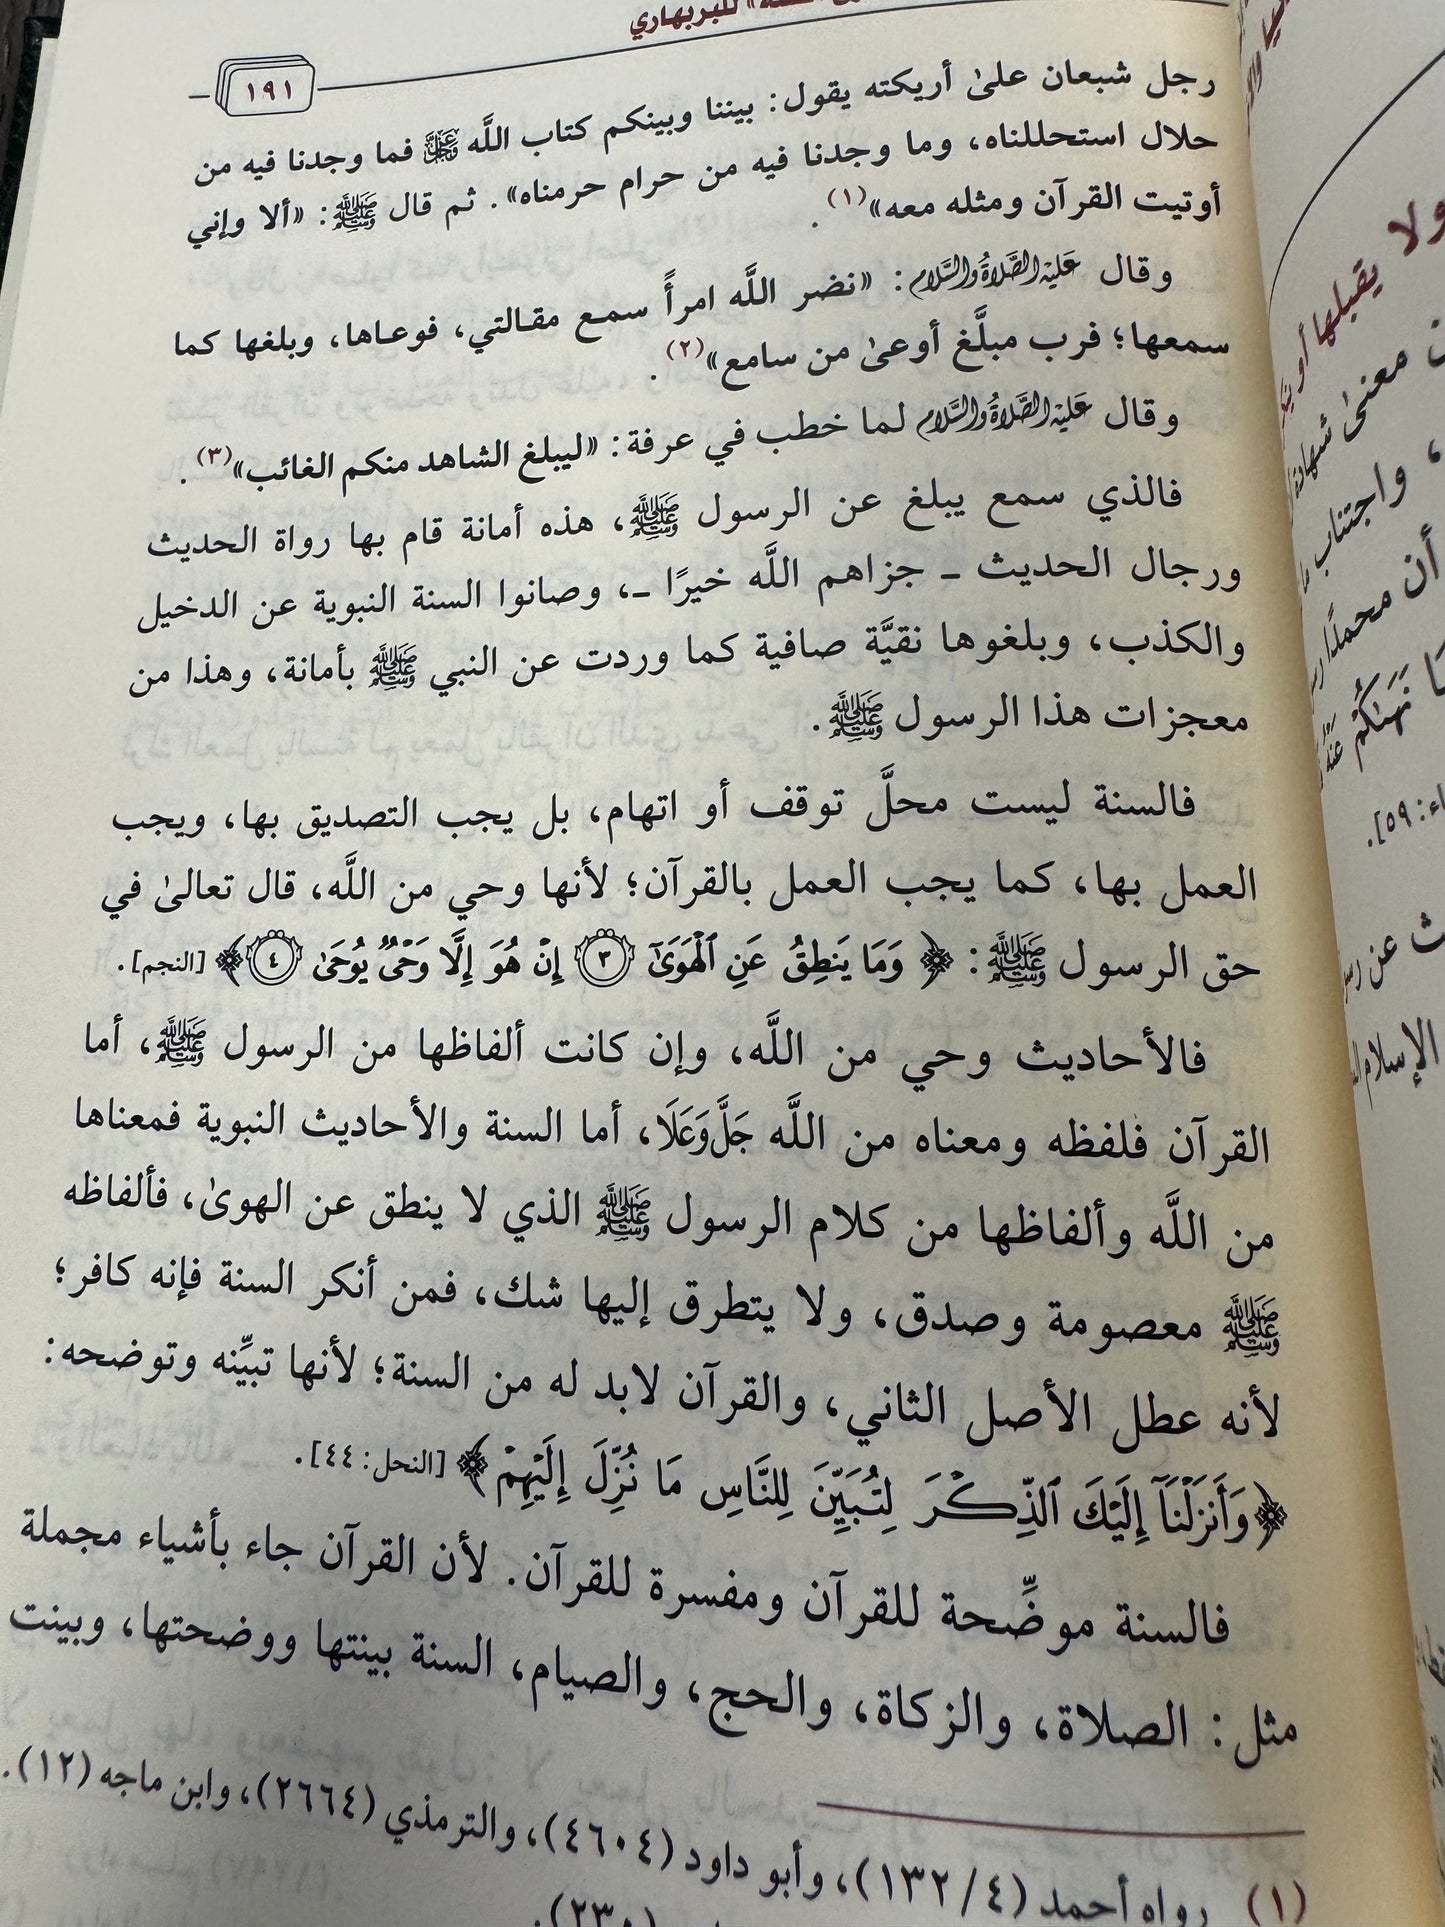 للبربهاري
١٩١
رجل شبعان علىٰ أريكته يقول: بيننا وبينكم كتاب اللَّه عَزَّوَجَلَّ فما وجدنا فيه من
حلال استحللناه، وما وجدنا فيه من حرام حرمناه». ثم قال ﷺ: «ألا وإني
أوتيت القرآن ومثله معه»(١).
وقال عَلَيْهِ الصَّلَاةُ وَالسَّلَام: «نضر اللَّه امرأً سمع مقالتي، فوعاها، وبلغها كما
سمعها؛ فرب مبلَّغ أوعىٰ من سامع»(٢).
وقال عَلَيْهِ الصَّلَاةُ وَالسَّلَام لما خطب في عرفة: «ليبلغ الشاهد منكم الغائب»(٣).
فالذي سمع يبلغ عن الرسول ﷺ، هذه أمانة قام بها رواة الحديث
ورجال الحديث ـ جزاهم اللَّه خيرًا ـ، وصانوا السنة النبوية عن الدخيل
والكذب، وبلغوها نقيَّة صافية كما وردت عن النبي ﷺ بأمانة، وهذا من
معجزات هذا الرسول ﷺ.
فالسنة ليست محلَّ توقف أو اتهام، بل يجب التصديق بها، ويجب
العمل بها، كما يجب العمل بالقرآن؛ لأنها وحي من اللَّه، قال تعالىٰ في
حق الرسول ﷺ: ﴿وَمَا يَنطِقُ عَنِ ٱلْهَوَىٰٓ ٣ إِنْ هُوَ إِلَّا وَحْىٌ يُوحَىٰ ٤﴾ [النجم].
فالأحاديث وحي من اللَّه، وإن كانت ألفاظها من الرسول ﷺ، أما
القرآن فلفظه ومعناه من اللَّه جَلَّ وَعَلَا، أما السنة والأحاديث النبوية فمعناها
من اللَّه وألفاظها من كلام الرسول ﷺ الذي لا ينطق عن الهوىٰ، فألفاظه
ﷺ معصومة وصدق، ولا يتطرق إليها شك، فمن أنكر السنة فإنه كافر؛
لأنه عطل الأصل الثاني، والقرآن لابد له من السنة؛ لأنها تبيِّنه وتوضحه:
﴿وَأَنزَلْنَآ إِلَيْكَ ٱلذِّكْرَ لِتُبَيِّنَ لِلنَّاسِ مَا نُزِّلَ إِلَيْهِمْ﴾ [النحل: ٤٤].
فالسنة موضِّحة للقرآن ومفسرة للقرآن. لأن القرآن جاء بأشياء مجملة
مثل: الصلاة، والزكاة، والحج، والصيام، السنة بينتها ووضحتها، وبينت
(١) رواه أحمد (٤/ ١٣٢)، وأبو داود (٤٦٠٤)، والترمذي (٢٦٦٤)، وابن ماجه (١٢).
ولا يقبلها أو
معنىٰ شهادة
، واجتناب
أن محمدًا
نَهَىٰكُمْ عَنْهُ
: ٥٩].
عن
الإسلام